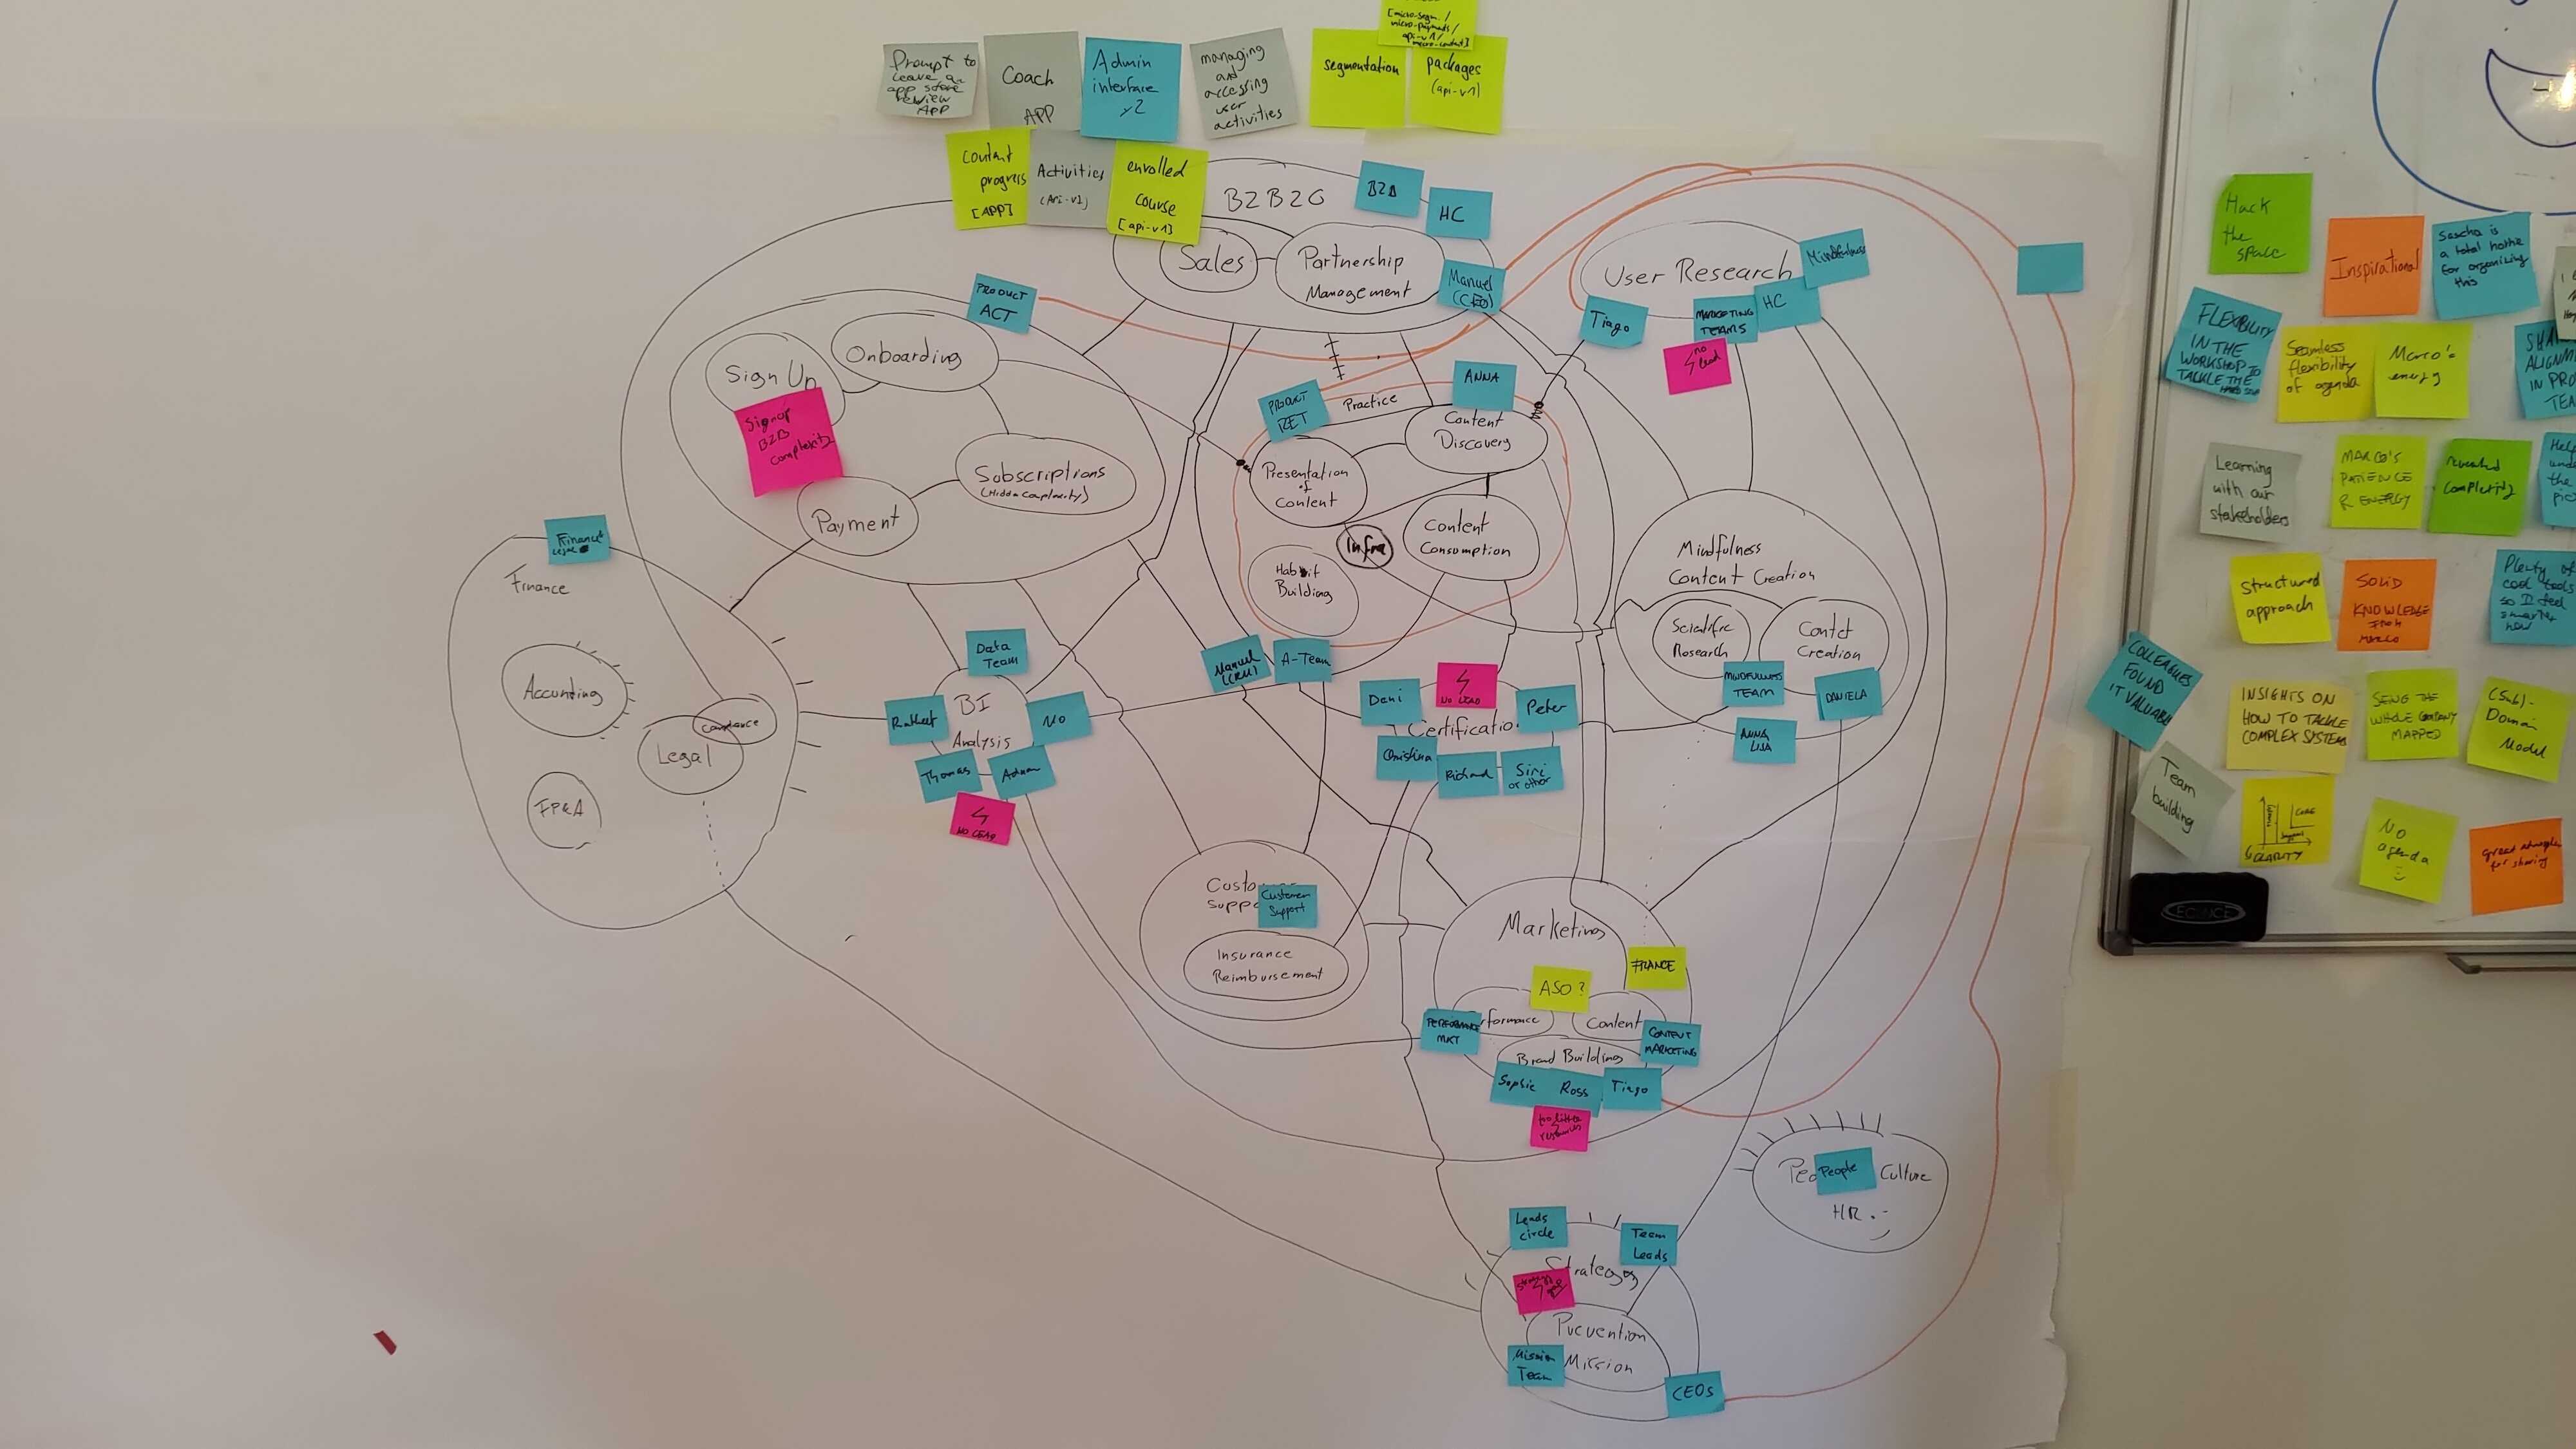 [micro-segm. /
micro-payments /
api-v1 /
macro-content]
Prompt to
leave a
app store
review
APP
Coach
APP
Admin
interface
v2
managing
and
accessing
user
activities
segmentation
packages
(api-v1)
Content
progress
[APP]
Activities
(Api-v1)
enrolled
course
[api-v1]
B2B2C
B2B
HC
Sales
Partnership
Management
Manuel
(CEO)
User Research
Mindfulness
Tiago
MARKETING
TEAMS
HC
no
lead
PRODUCT
ACT
Sign Up
Onboarding
Signup
B2B
complexity
Subscriptions
(Hidden Complexity)
Payment
PRODUCT
RET
Practice
ANNA
Content
Discovery
Presentation
of
Content
Infra
Content
Consumption
Habit
Building
Mindfulness
Content Creation
Scientific
Research
Creation
MINDFULNESS
TEAM
DANIELA
ANNA
LISA
Finance
Legal
Finance
Accounting
Legal
FP&A
Data
Team
BI
Analysis
NO
Thomas
Adnan
NO LEAD
Manuel
(CRM)
A-Team
Dani
NO LEAD
Peter
Certificatio
Christina
Richard
Siri
or other
Custo
Suppo
Customer
Support
Insurance
Reimbursement
Marketing
FRANCE
ASO?
PERFORMANCE
MKT
rformance
Content
CONTENT
MARKETING
Brand Building
Sophie
Ross
Tiago
too little
resources
People
Culture
HR :-)
Leads
circle
Team
Leads
Strategy
Prevention
Mission
Mission
Team
CEOs
Hack
the
space
Inspirational
Sascha is
a total hottie
for organizing
this
FLEXIBILITY
IN THE
WORKSHOP TO
TACKLE THE
Seamless
flexibility
of agenda
Marco's
energy
SHA
ALIGNM
IN PRO
TEA
Learning
with our
stakeholders
MARCO'S
PATIENCE
& ENERGY
revealed
complexity
Help
und
the
pic
Structured
approach
SOLID
KNOWLEDGE
FROM
MARCO
Plenty of
cool tools
so I feel
smarter
now
COLLEAGUES
FOUND
IT VALUABLE
INSIGHTS ON
HOW TO TACKLE
COMPLEX SYSTEMS
SEING THE
WHOLE COMPANY
MAPPED
(Sub)-
Domain
Model
Team
building
CORE
CLARITY
No
agenda
Great atmosphere
for sharing